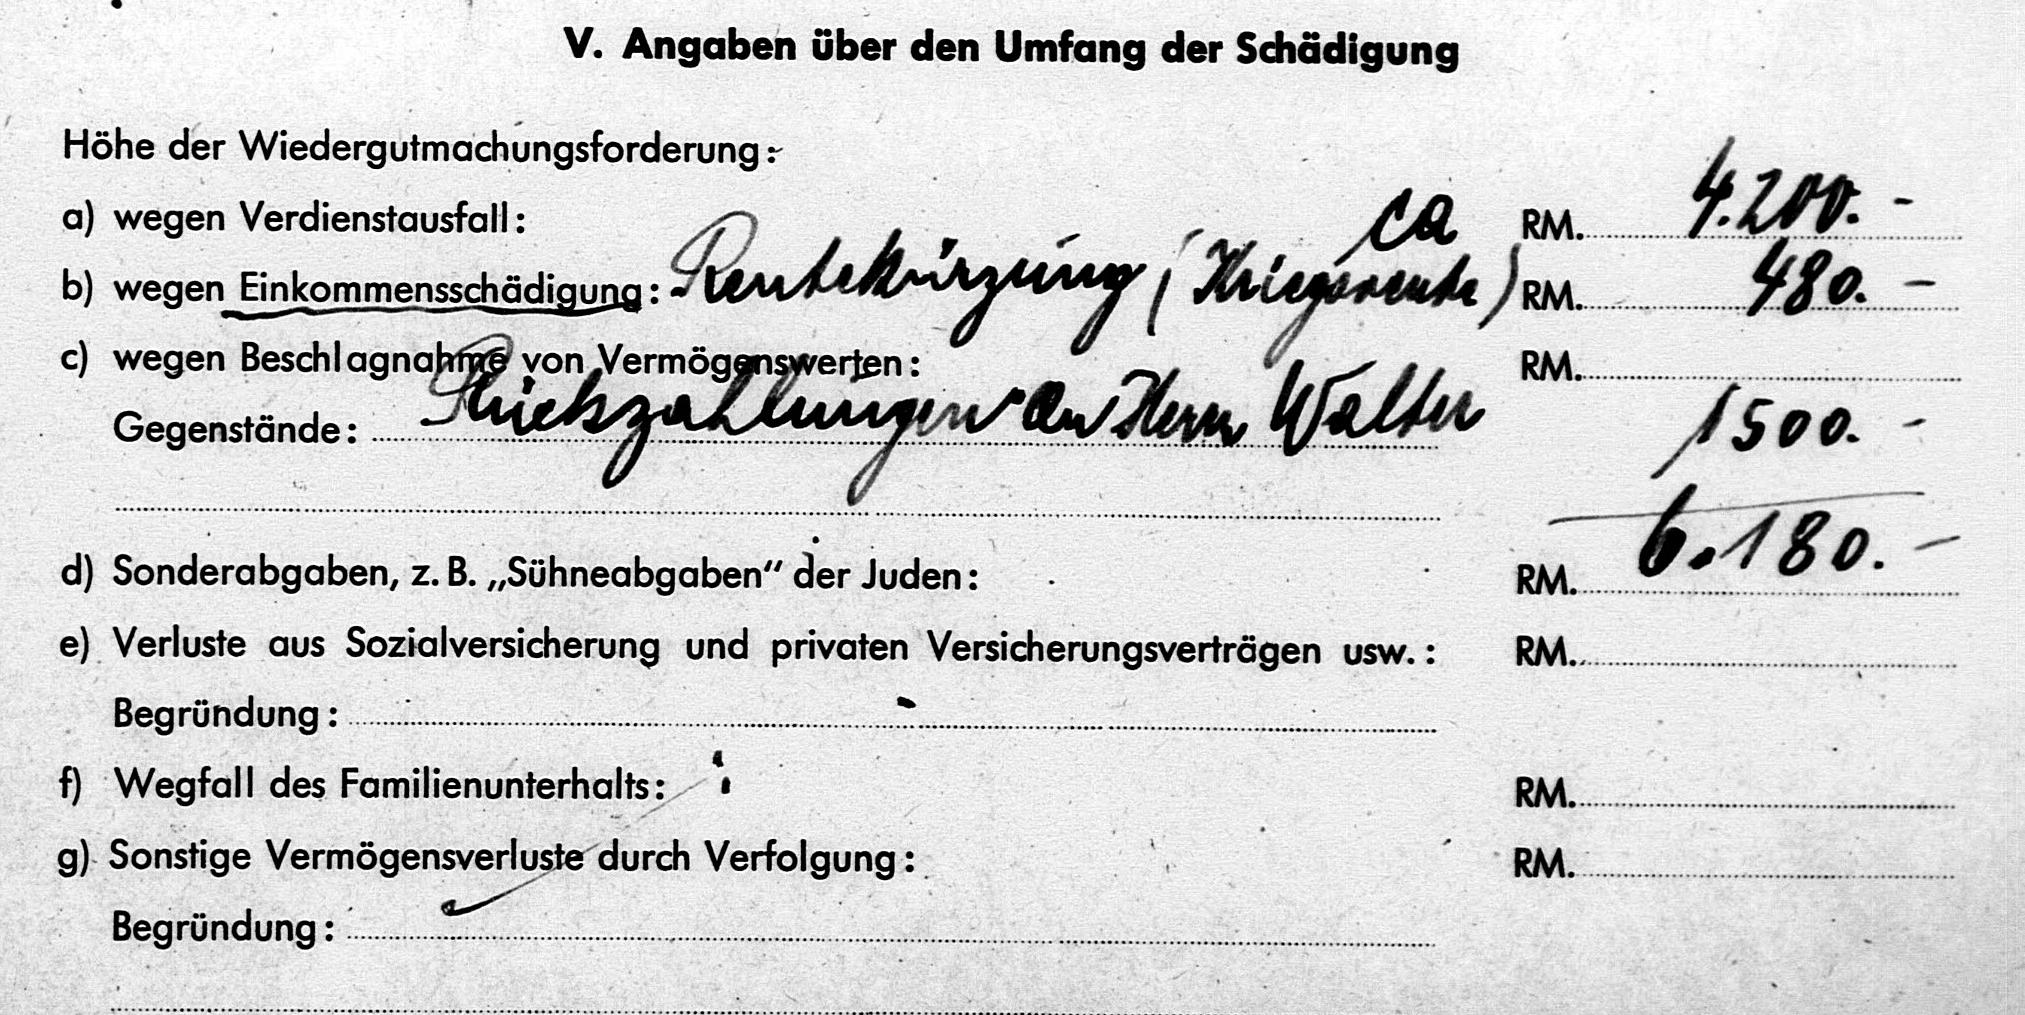 V. Angaben über den Umfang der Schädigung
Höhe der Wiedergutmachungsforderung:
a) wegen Verdienstausfall: ca RM. 4.200.-
b) wegen Einkommensschädigung: Rentekürzung (Kriegsrente) RM. 480.-
c) wegen Beschlagnahme von Vermögenswerten: RM.
Gegenstände: Rückzahlungen an Herrn Walter 1500.-
d) Sonderabgaben, z. B. „Sühneabgaben“ der Juden: RM. 6.180.-
e) Verluste aus Sozialversicherung und privaten Versicherungsverträgen usw.: RM.
Begründung:
f) Wegfall des Familienunterhalts: RM.
g) Sonstige Vermögensverluste durch Verfolgung: RM.
Begründung: